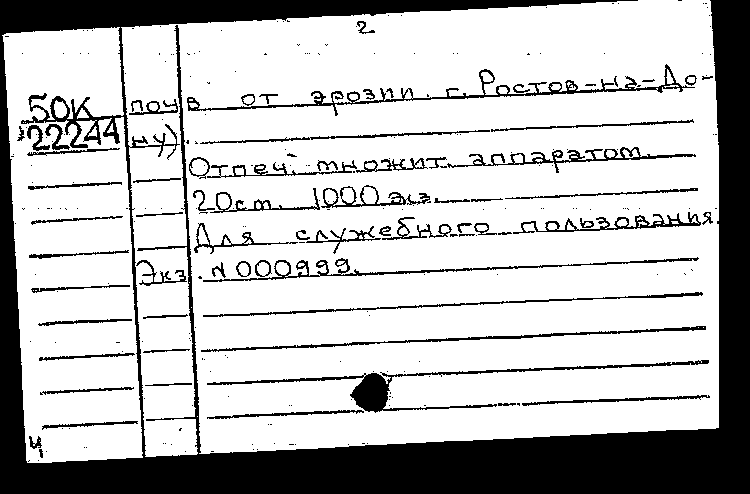 2
50К почв от эрозии. г. Ростов-на-До-
22244 ну).
Отпеч. множит. аппаратом.
20см. 1000 экз.
Для служебного пользования.
Экз. N 000999.
Ч